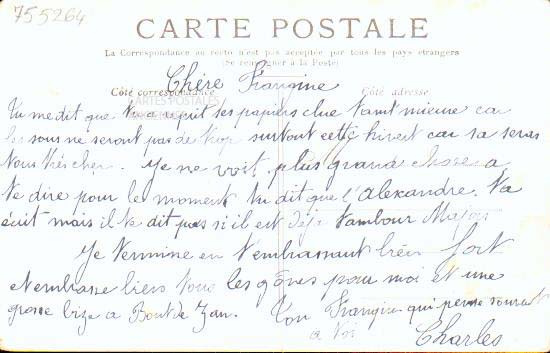 755264
CARTE POSTALE
La Correspondance au recto n'est pas acceptée par tous les pays étrangers
(Se renseigner à la Poste)
Côté correspondance Côté adresse
CARTES POSTALES
Chère Frangine
Tu me dit que tu a reçut ses papiers tant mieux car
les sous ne seront pas de trop surtout cette hivert car sa seras
tous très cher. Je ne voit plus grand chose a
te dire pour le moment tu dit que l'Alexandre. t'a
écrit mais il te dit pas si il est déja tambour Major
Je termine en t'embrassant bien fort
et embrasse biens tous les gônes pour moi et une
grosse bize a Bout de Zan. Ton Frangin qui pense souvent
a toi
Charles